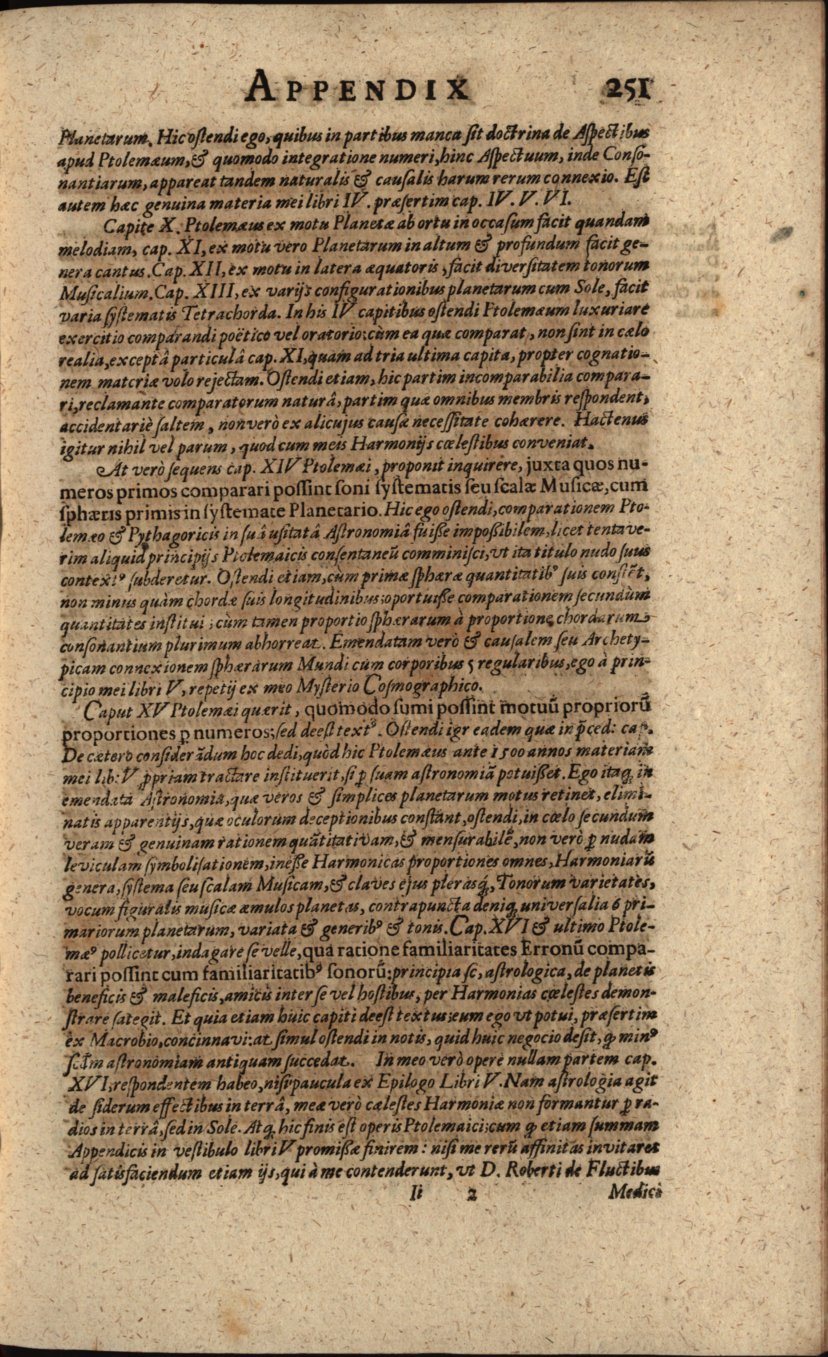 APPENDIX 251
Planetarum. Hic ostendi ego, quibus in partibus manca sit doctrina de Aspectibus
apud Ptolemæum, & quomodo integratione numeri, hinc Aspectuum, inde Conso-
nantiarum, appareat tandem naturalis & causalis harum rerum connexio. Est
autem hæc genuina materia mei libri IV. præsertim cap. IV. V. VI.
Capite X. Ptolemæus ex motu Planetæ ab ortu in occasum facit quandam
melodiam, cap. XI, ex motu vero Planetarum in altum & profundum facit ge-
nera cantus. Cap. XII, ex motu in latera æquatoris, facit diversitatem tonorum
Musicalium. Cap. XIII, ex varijs configurationibus planetarum cum Sole, facit
varia systematis Tetrachorda. In his IV capitibus ostendi Ptolemæum luxuriare
exercitio comparandi poëtico vel oratorio: cùm ea quæ comparat, non sint in cælo
realia, exceptâ particulâ cap. XI, quam ad tria ultima capita, propter cognatio-
nem materiæ volo rejectam. Ostendi etiam, hic partim incomparabilia compara-
ri, reclamante comparatorum naturâ, partim quæ omnibus membris respondent,
accidentariè saltem, non verò ex alicujus causæ necessitate cohærere. Hactenus
igitur nihil vel parum, quod cum meis Harmonijs cœlestibus conveniat.
At verò sequens cap. XIV Ptolemæi, proponit inquirere, juxta quos nu-
meros primos comparari possint soni systematis seu scalæ Musicæ, cum
sphæris primis in systemate Planetario. Hic ego ostendi, comparationem Pto-
lemæo & Pythagoricis in suâ usitatâ Astronomiâ fuisse impossibilem, licet tentave-
rim aliquid principijs Ptolemaicis consentaneū comminisci, vt ita titulo nudo suus
contextꝰ subderetur. Ostendi etiam, cùm primæ sphæræ quantitatibꝰ suis constēt,
non minus quàm chordæ suis longitudinibus; oportuisse comparationem secundùm
quantitates institui; cùm tamen proportio sphærarum à proportione chordarum
consonantium plurimum abhorreat. Emendatam verò & causalem seu Archety-
picam connexionem sphærarum Mundi cum corporibus 5 regularibus, ego à prin-
cipio mei libri V, repetij ex meo Mysterio Cosmographico.
Caput XV Ptolemæi quærit, quomodo sumi possint motuū propriorū
proportiones ꝑ numeros; sed deest textꝰ. Ostendi igr eadem quæ in p̄ced: cap.
De cætero considerādum hoc dedi, quòd hic Ptolemæus ante 1500 annos materiam
mei lib: V p̄priam tractare instituerit, si ꝑ suam astronomiā potuisset. Ego itaq;, in
emendatâ Astronomiâ, quæ veros & simplices planetarum motus retinet, elimi-
natis apparentijs, quæ oculorum deceptionibus constant, ostendi, in cœlo secundùm
veram & genuinam rationem quātitativam, & mensurabilē, non verò ꝑ nudam
leviculam symbolisationem, inesse Harmonicas proportiones omnes, Harmoniarū
genera, systema seu scalam Musicam, & claves ejus plerasq;, Tonorum varietates,
vocum figuralis musicæ æmulos planetas, contrapuncta deniq; universalia 6 pri-
mariorum planetarum, variata & generibꝰ & tonis. Cap. XVI & ultimo Ptole-
mæꝰ pollicetur, indagare se velle, quâ ratione familiaritates Erronū compa-
rari possint cum familiaritatibꝰ sonorū: principia sc, astrologica, de planetis
beneficis & maleficis, amicis inter se vel hostibus, per Harmonias cœlestes demon-
strare sategit. Et quia etiam huic capiti deest textus; eum ego vt potui, præsertim
ex Macrobio, concinnavi: at simul ostendi in notis, quid huic negocio desit, q; minꝰ
sctm astronomiam antiquam succedat. In meo verò opere nullam partem cap.
XVI, respondentem habeo, nisi paucula ex Epilogo Libri V. Nam astrologia agit
de siderum effectibus in terrâ, meæ verò cælestes Harmoniæ non formantur ꝑ ra-
dios in terrâ, sed in Sole. Atq; hic finis est operis Ptolemaici; cum q; etiam summam
Appendicis in vestibulo libri V promissæ finirem: nisi me rerū affinitas invitaret
ad satisfaciendum etiam ijs, qui à me contenderunt, vt D. Roberti de Fluctibus
Ii 2 Medici